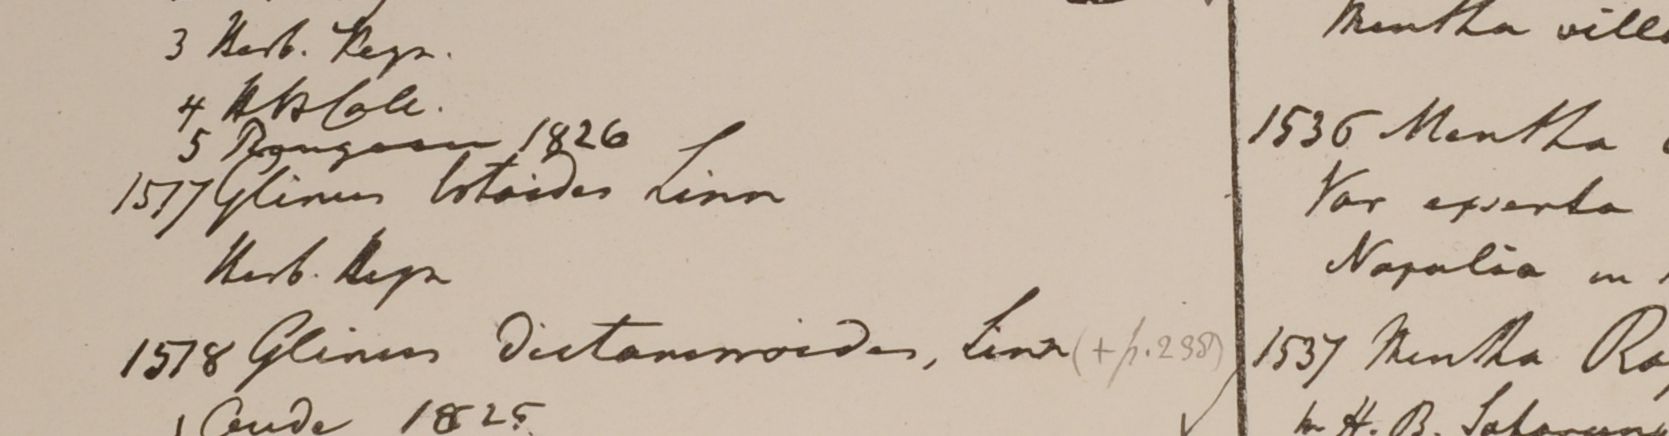 3 Herb. Heyn.
4 HB Calc.
5 Rangoon 1826
1517 Glinus lotoides Linn
Herb. Heyn
1518 Glinus dictamnoides, Linn (+ p. 238)
1 Oude 1825
Mentha
1536 Mentha
Var exserta
Napalia in
1537 Mentha
in H. B.